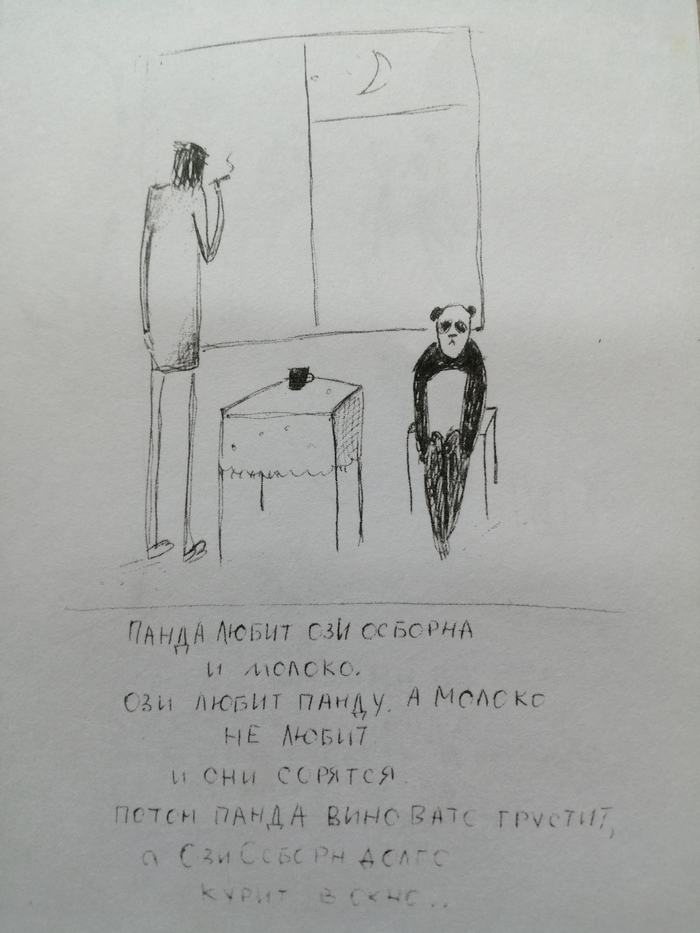 ПАНДА ЛЮБИТ ОЗИ ОСБОРНА
И МОЛОКО.
ОЗИ ЛЮБИТ ПАНДУ. А МОЛОКО
НЕ ЛЮБИТ
И ОНИ СОРЯТСЯ.
ПОТОМ ПАНДА ВИНОВАТО ГРУСТИТ,
а ОЗИ ОСБОРН ДОЛГО
КУРИТ В ОКНО..